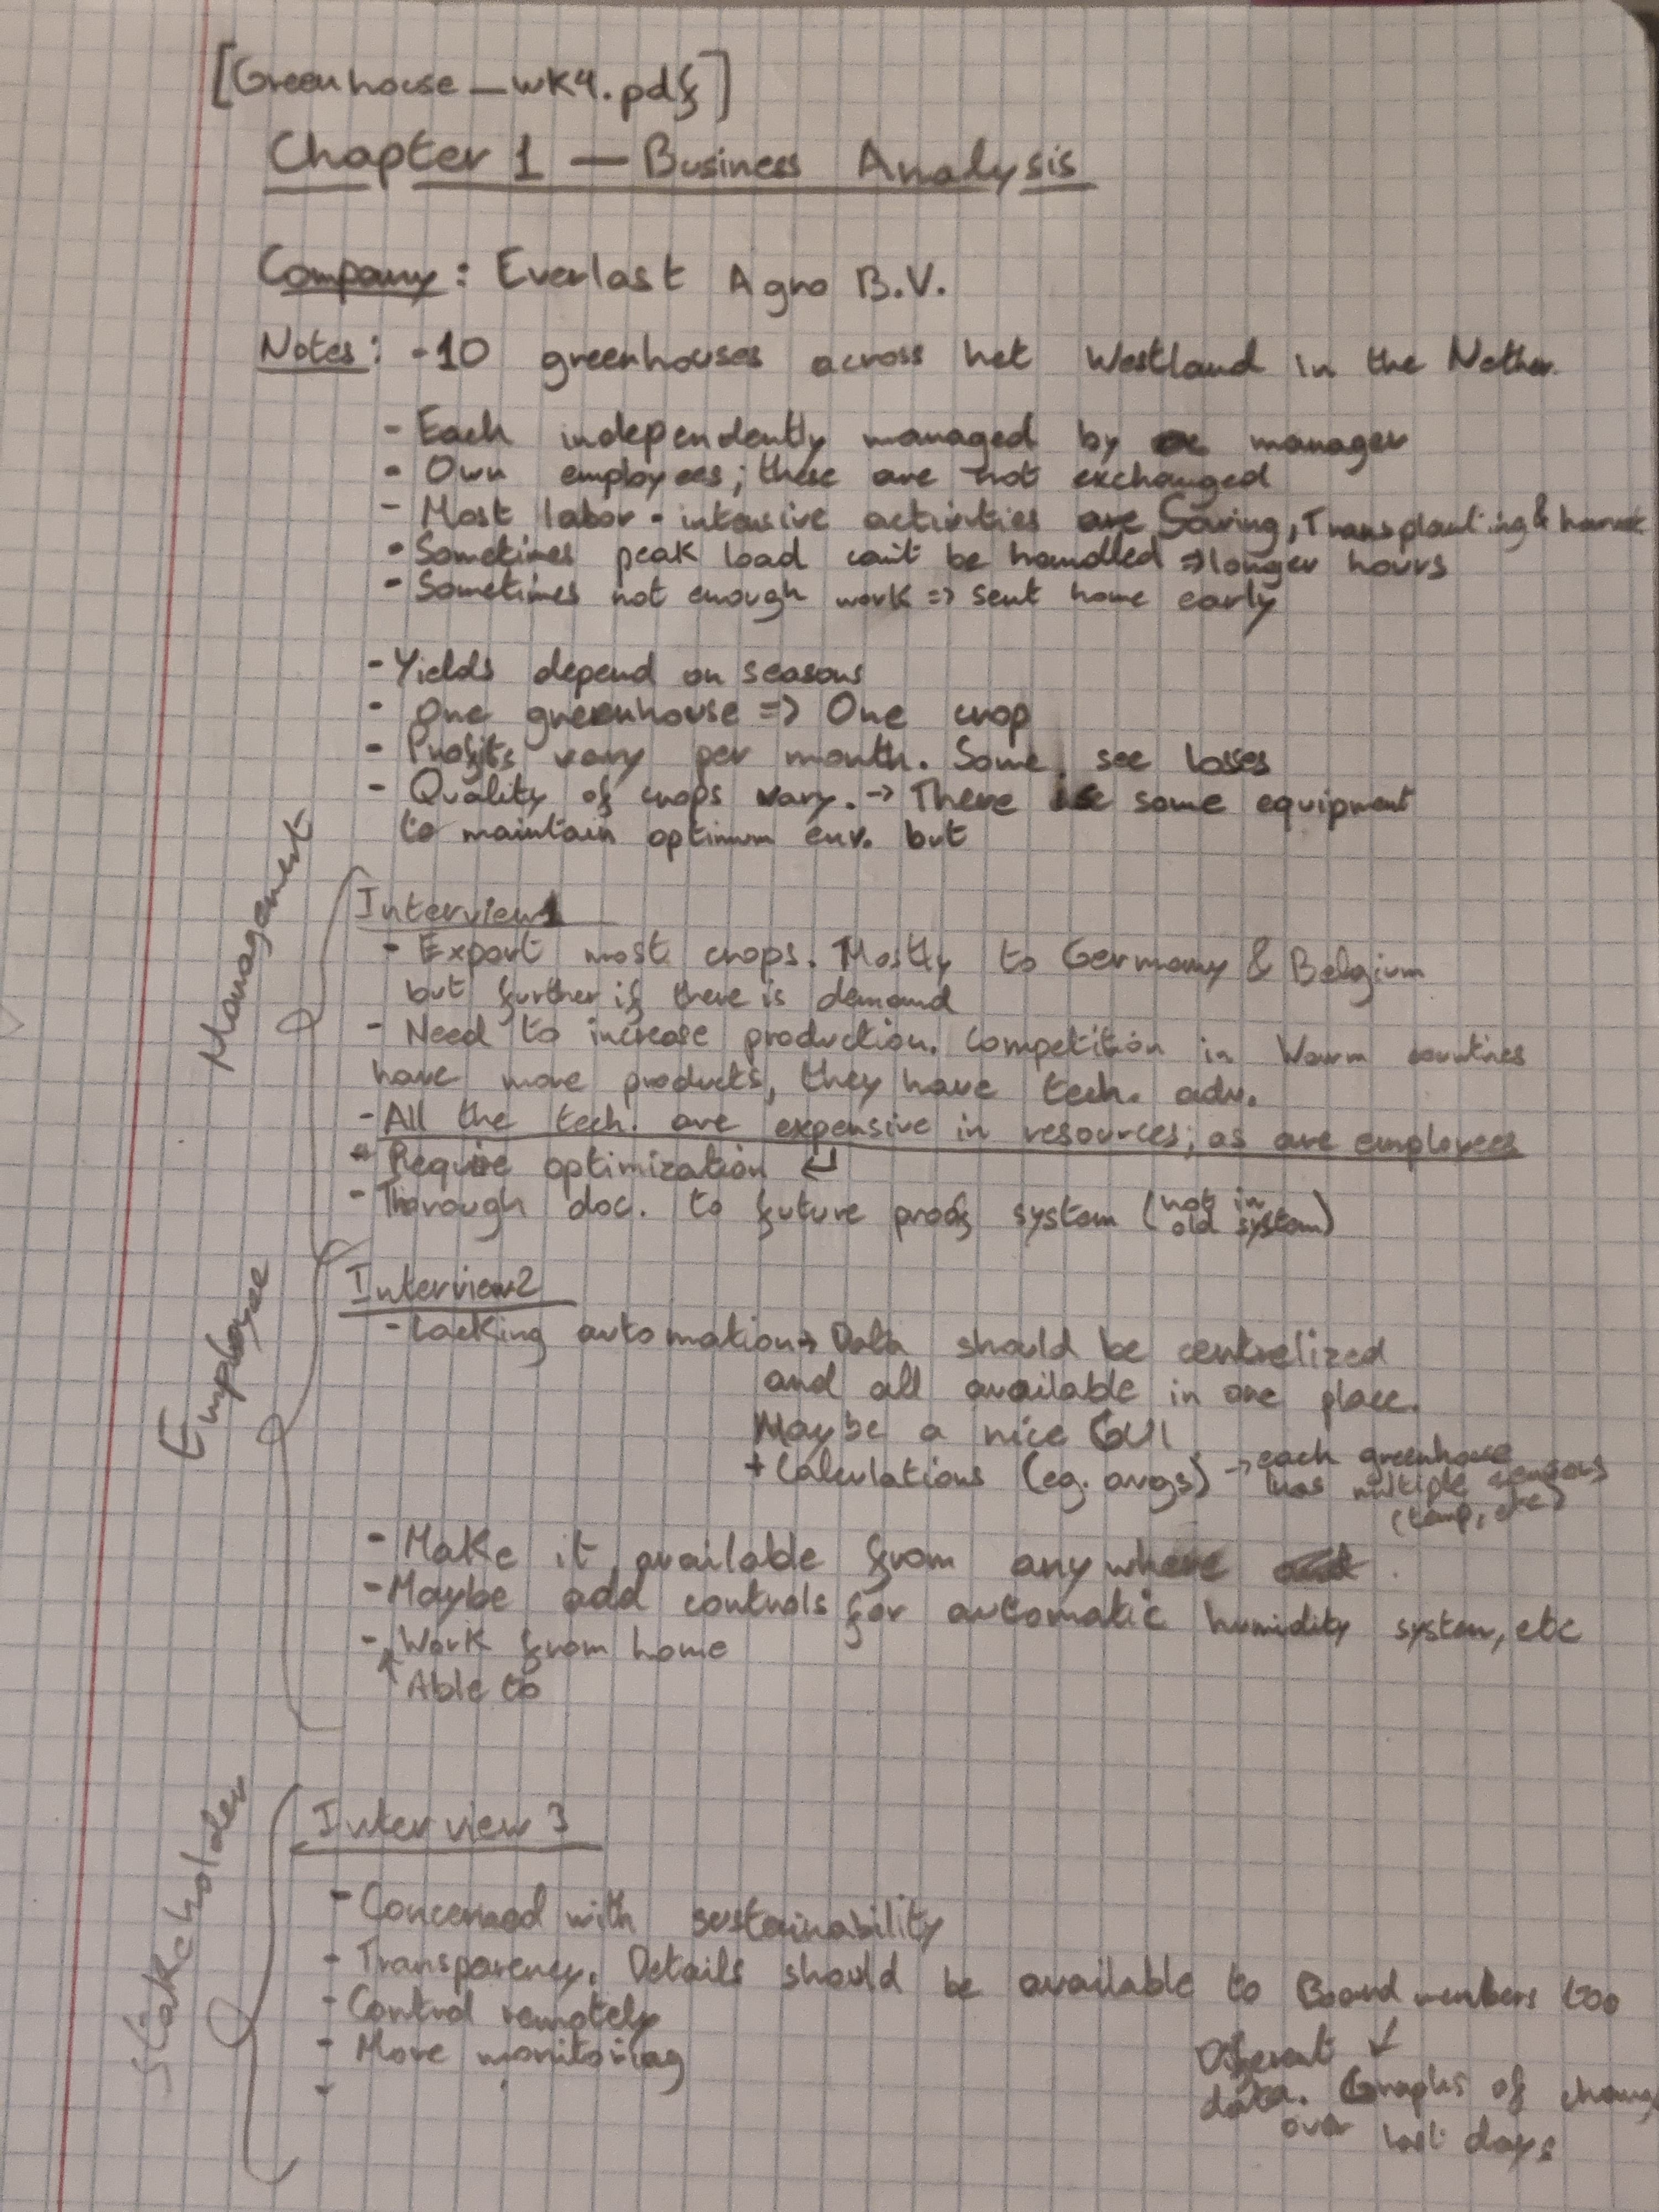 [Greenhouse_wk4.pdf]
Chapter 1 — Business Analysis
Company: Everlast Agro B.V.
Notes: -10 greenhouses across het Westland in the Nether.
- Each independently managed by manager
- Own employees; these are not exchanged
- Most labor-intensive activities are Sowing, Transplanting & harvest
- Sometimes peak load can't be handled => longer hours
- Sometimes not enough work => sent home early
- Yields depend on seasons
- One greenhouse => One crop
- Profits vary per month. Some see losses
- Quality of crops vary. -> There is some equipment
to maintain optimum env. but
Management
Interview 1
- Export most crops. Mostly to Germany & Belgium
but further if there is demand
- Need to increase production. Competition in Warm countries
have more products, they have tech. adv.
- All the tech. are expensive in resources; as are employees
- Require optimization ↵
- Thorough doc. to future proof system (not in
old system)
Employee
Interview 2
- Lacking automation -> Data should be centralized
and all available in one place.
Maybe a nice GUI
+ Calculations (eg. avgs) -> each greenhouse
has multiple sensors
(temp, etc)
- Make it available from anywhere
- Maybe add controls for automatic humidity system, etc
- Work from home
↑ Able to
Stakeholder
Interview 3
- Concerned with sustainability
- Transparency. Details should be available to Board members too
- Control remotely
- More monitoring
-
Different ↙
data. Graphs of change
over last days